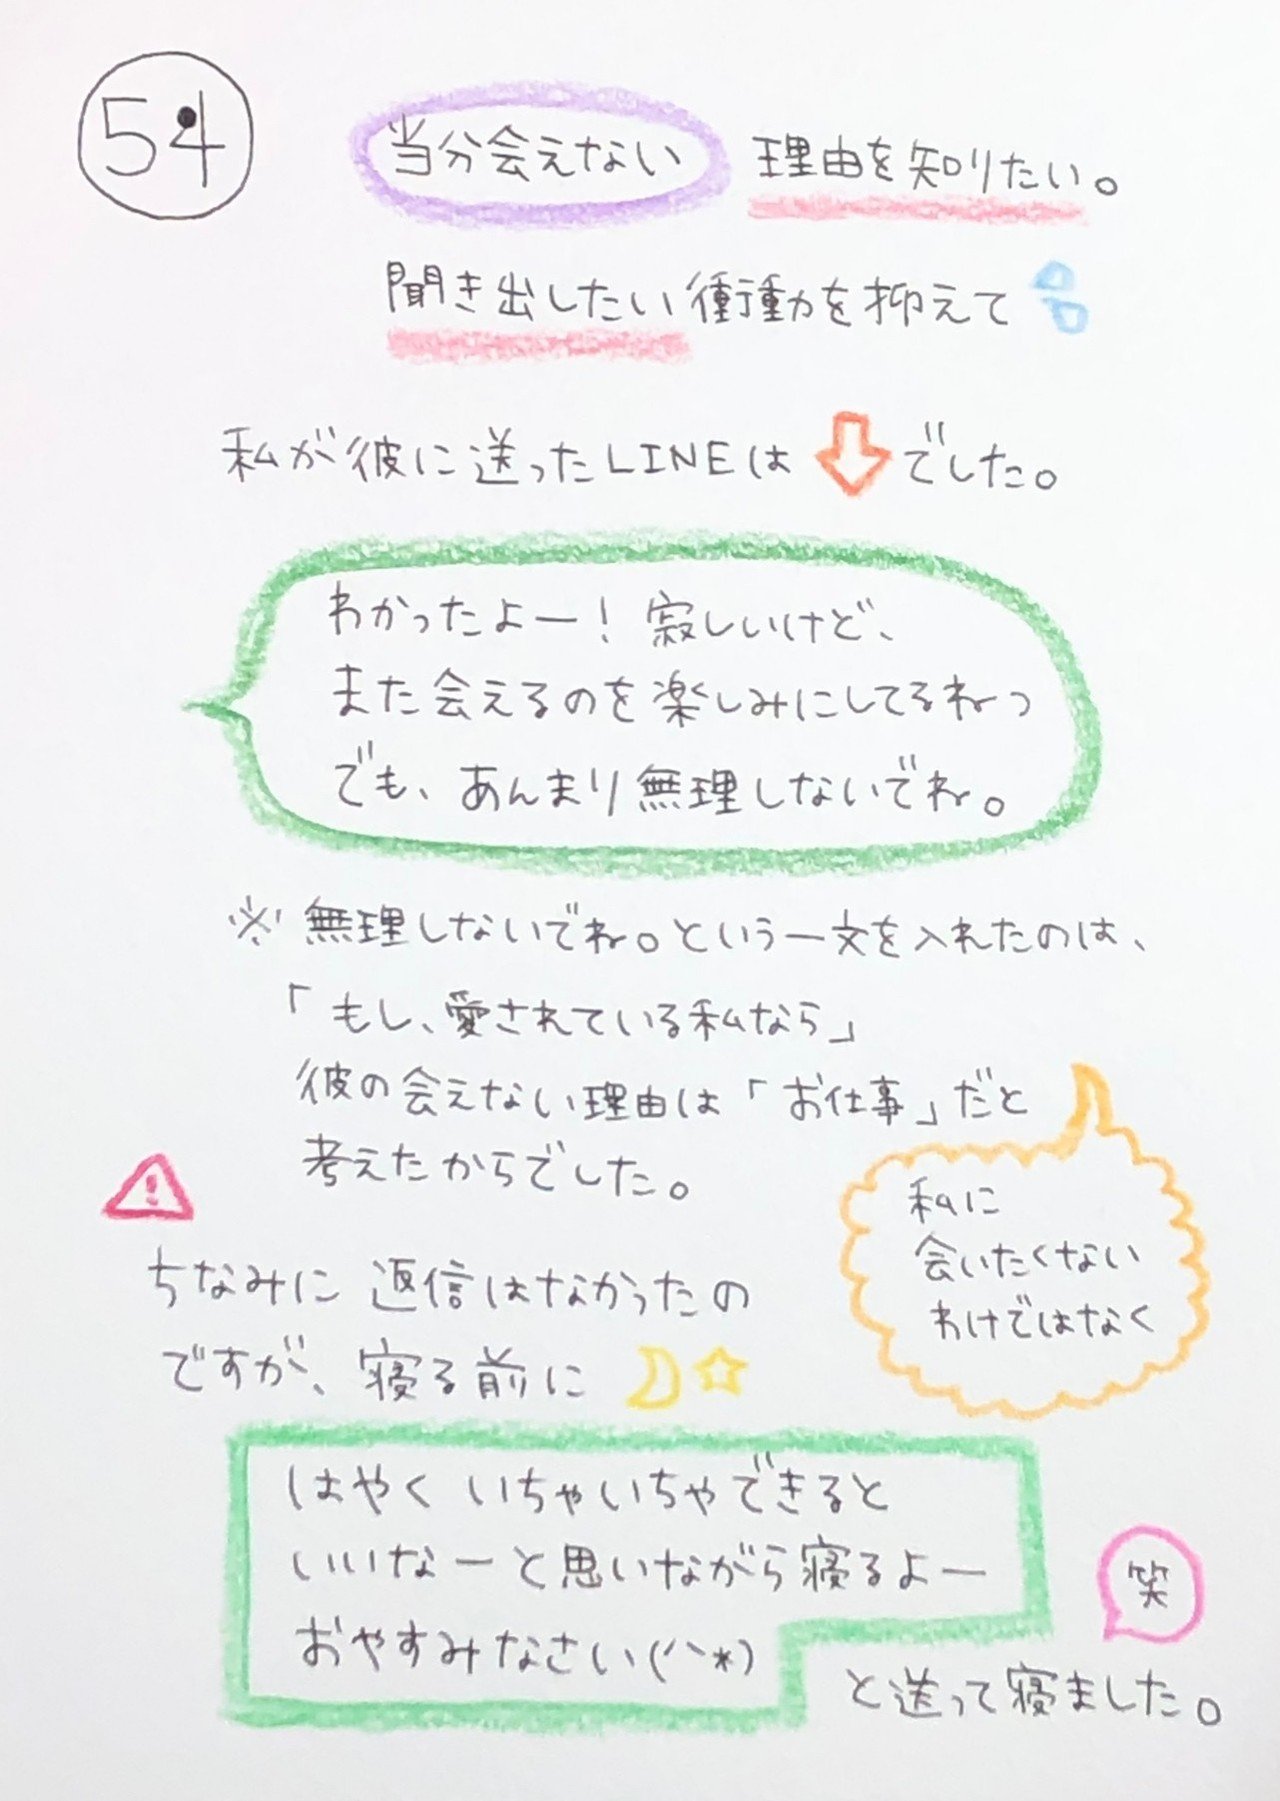 54
当分会えない 理由を知りたい。
聞き出したい衝動を抑えて
私が彼に送ったLINEは⇩でした。
わかったよー！寂しいけど、
また会えるのを楽しみにしてるねっ
でも、あんまり無理しないでね。
※無理しないでね。という一文を入れたのは、
「もし、愛されている私なら」
彼の会えない理由は「お仕事」だと
考えたからでした。
私に
会いたくない
わけではなく
!
ちなみに返信はなかったの
ですが、寝る前に
はやくいちゃいちゃできると
いいなーと思いながら寝るよー
おやすみなさい(^^*)
笑
と送って寝ました。